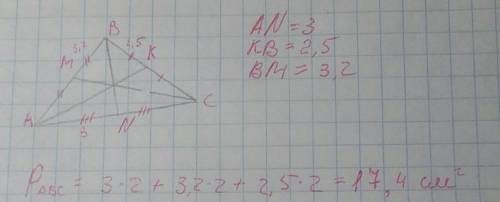 B
3,2 2,5
M K
A 3 N C
AN = 3
KB = 2,5
BM = 3,2
P_ABC = 3·2 + 3,2·2 + 2,5·2 = 17,4 см²